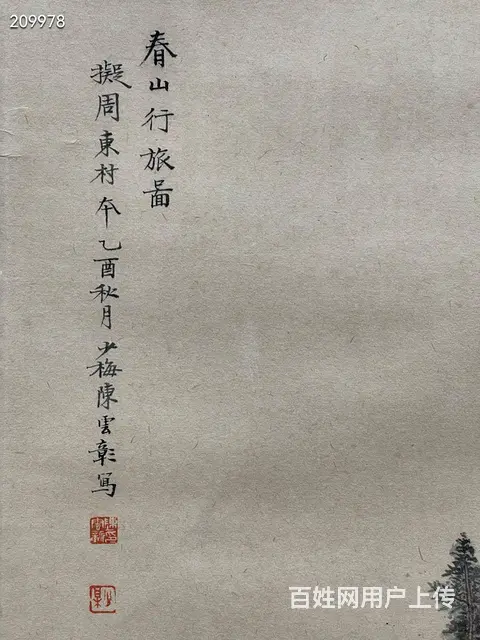 209978
春山行旅啚
擬周東村本乙酉秋月少梅陳雲彰寫
百姓网用户上传